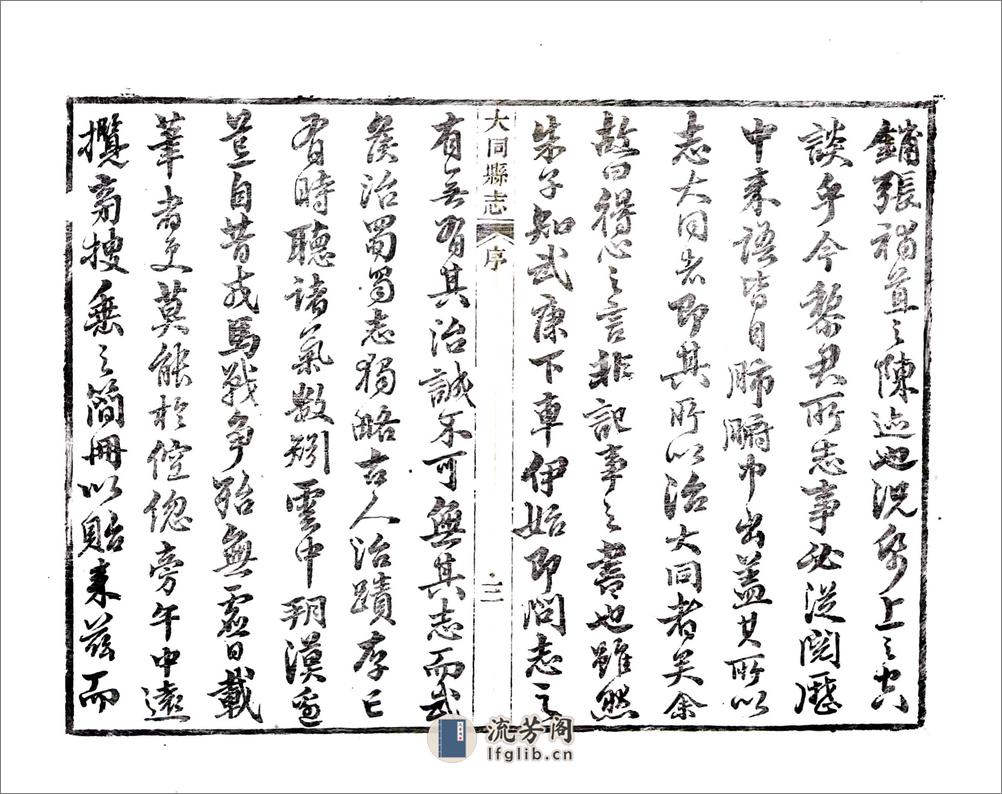 鋪張補苴之陳迹也況紙上之空
談乎今黎君所志事必從閱歷
中來語皆自肺腑中出蓋其所以
志大同者即其所以治大同者矣余
故曰得心之言非記事之書也雖然
朱子知武康下車伊始即問志之
大同縣志 序 三
有無有其治誠不可無其志而武
侯治蜀蜀志獨略古人治蹟存亡
有時聽諸氣數矧雲中朔漠邊
荒自昔戎馬戰爭殆無虛日載
筆者更莫能於倥傯旁午中遠
攬旁搜垂之簡冊以貽來茲而
流芳阁
lfglib.cn